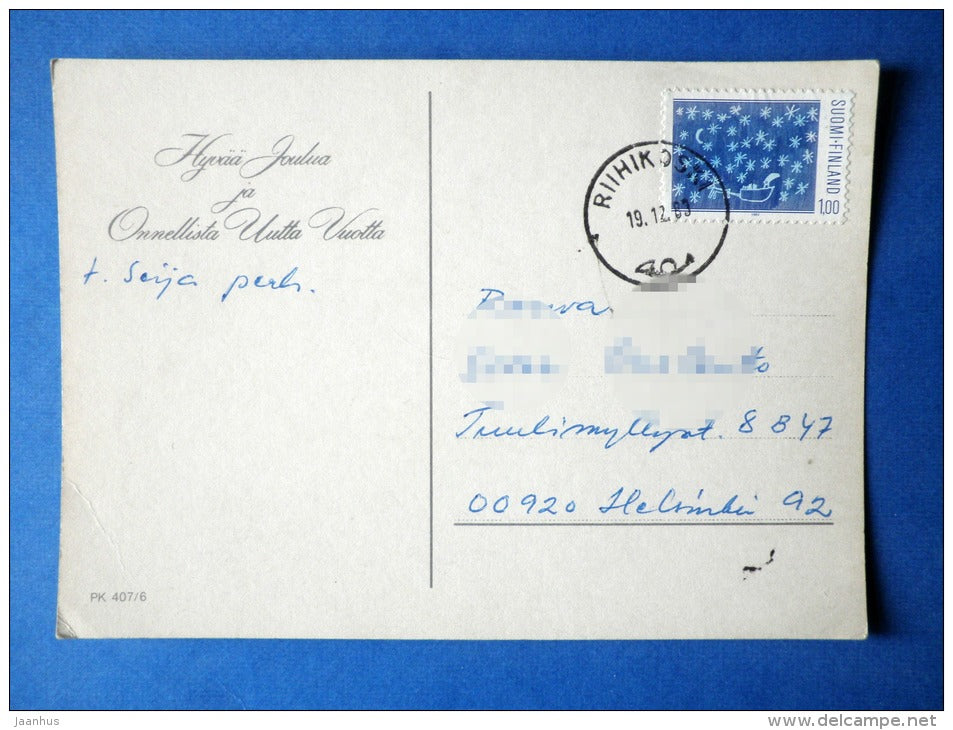 Hyvää Joulua
ja
Onnellista Uutta Vuotta
t. Seija perh.
PK 407/6
SUOMI-FINLAND
1,00
RIIHIKOSKI
19.12.83
Tuulimyllynt. 8 B 47
00920 Helsinki 92
Jaanhus
www.delcampe.net